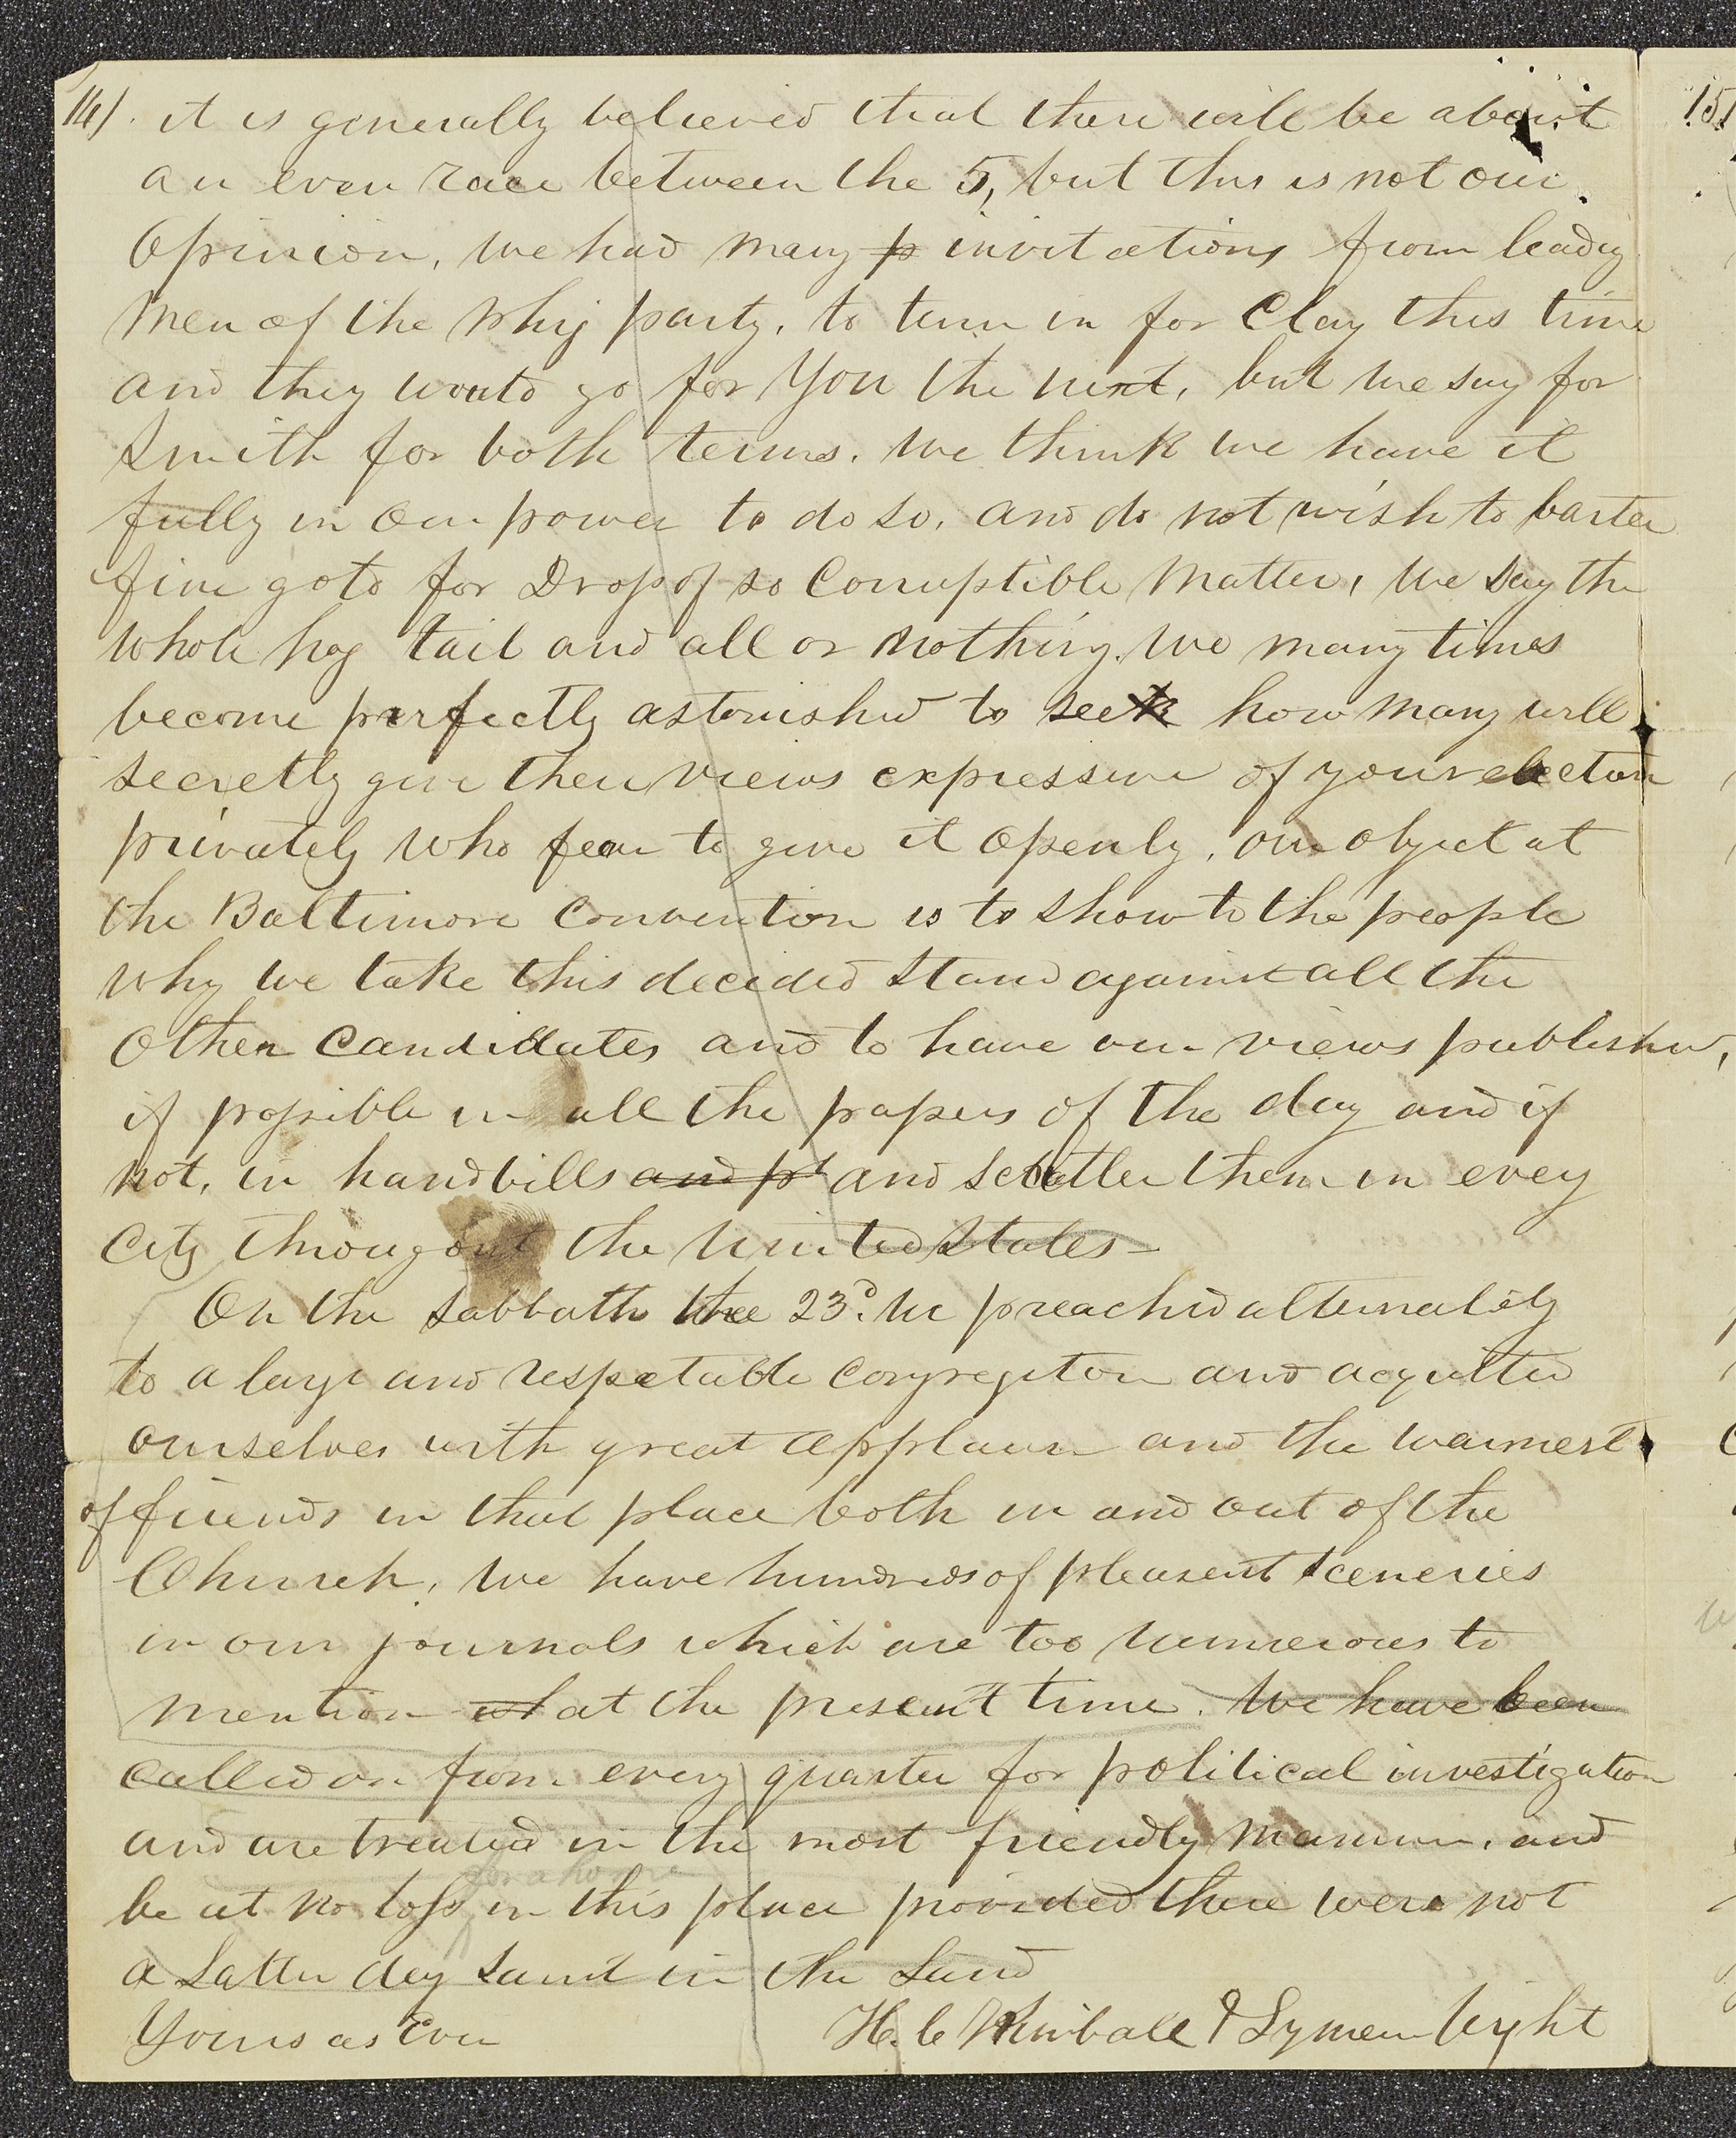 14). it is generally believed that there will be about
an even race between the 5, but this is not our
Opinion, we had many p invitations from leadig
men of the whig party, to turn in for Clay this time
and they would go for You the next, but we say for
Smith for both terms. we think we have it
fully in our power to do so, and do not wish to barter
fine gold for Drop of so Corruptible Matter, we say the
whole hog tail and all or nothing. we many times
become perfectly astonished to see how many will
secretly give their views expressive of your election
privately who fear to give it openly, our object at
the Baltimore Convention is to show to the people
why we take this decided stand against all the
other Candidates and to have our views published,
if possible in all the papers of the day and if
not, in handbills and p and scatter them in evey
City througout the United States—
On the Sabbath the 23d. we preached alternately
to a large and respetable Congregeton and acquitted
ourselves with great applause and the warmest
of friends in that place both in and out of the
Church, we have hundreds of pleasent sceneries
in our journals which are too numerous to
mention at the present time. We have been
called on from every quarter for political investigation
and are treated in the most friendly manner, and
for a home
be at no loss in this place provided there were not
a Latter day Saint in the Land
Yours as Ever H. C Kimball & Lyman Wight
15)